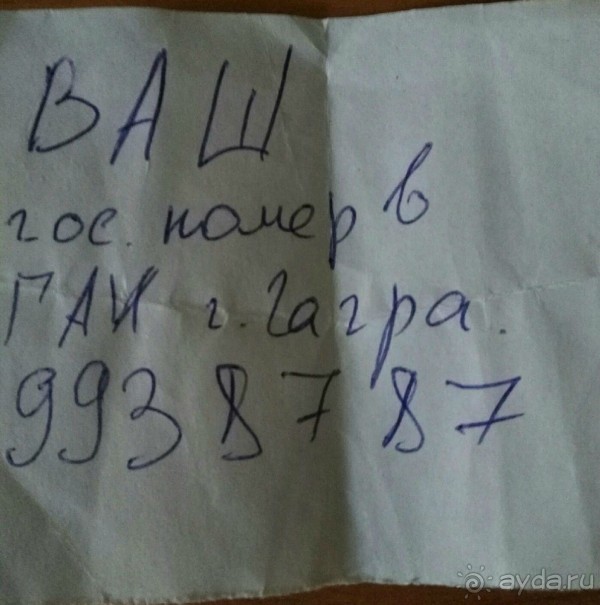 ВАШ
гос. номер в
ГАИ г. Гагра.
9938787
ayda.ru